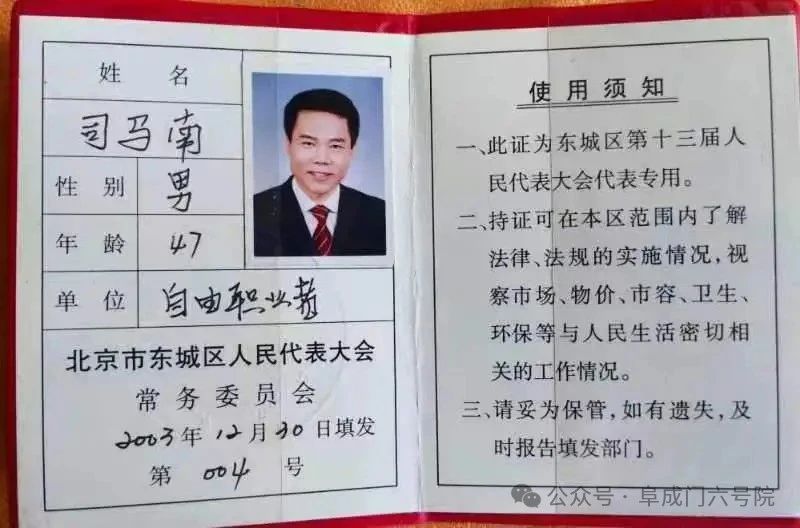 姓 名
司马南
性 别 男
年 龄 47
单 位 自由职业者
北京市东城区人民代表大会
常务委员会
2003年12月30日填发
第 004 号
使用须知
一、此证为东城区第十三届人
民代表大会代表专用。
二、持证可在本区范围内了解
法律、法规的实施情况,视
察市场、物价、市容、卫生、
环保等与人民生活密切相
关的工作情况。
三、请妥为保管,如有遗失,及
时报告填发部门。
公众号·阜成门六号院